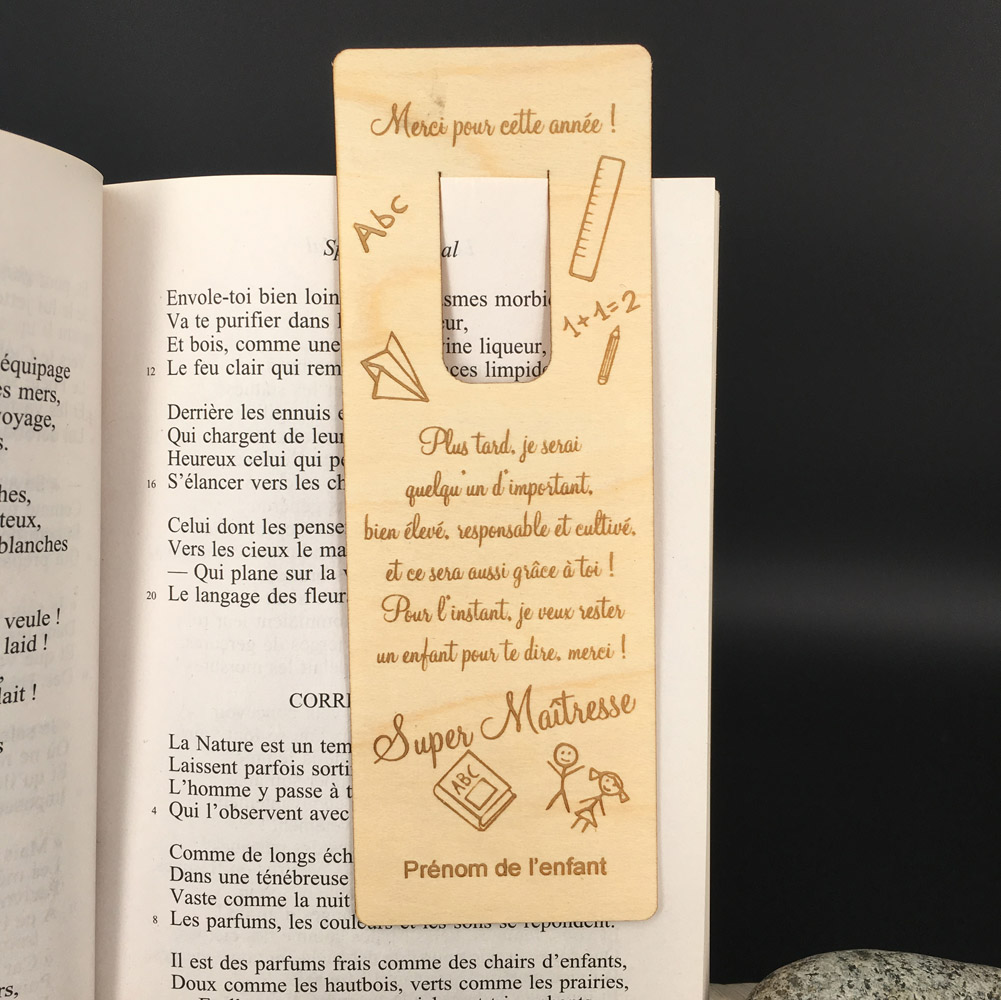 équipage
es mers,
voyage,
s.
hes,
teux,
blanches
veule !
laid !
lait !
s
rs,
Sp
al
Envole-toi bien loin
smes morbi
Va te purifier dans
eur,
Et bois, comme une
ine liqueur,
12 Le feu clair qui rem
ces limpid
Derrière les ennuis e
Qui chargent de leur
Heureux celui qui pe
16 S'élancer vers les ch
Celui dont les pense
Vers les cieux le ma
— Qui plane sur la v
20 Le langage des fleur
CORRE
La Nature est un tem
Laissent parfois sorti
L'homme y passe à t
4 Qui l'observent avec
Comme de longs éch
Dans une ténébreuse
Vaste comme la nuit
8 Les parfums, les couleurs et les sons se répondent.
Il est des parfums frais comme des chairs d'enfants,
Doux comme les hautbois, verts comme les prairies,
Merci pour cette année !
Abc
1+1=2
Plus tard, je serai
quelqu'un d'important,
bien élevé, responsable et cultivé,
et ce sera aussi grâce à toi !
Pour l'instant, je veux rester
un enfant pour te dire, merci !
Super Maîtresse
ABC
Prénom de l'enfant